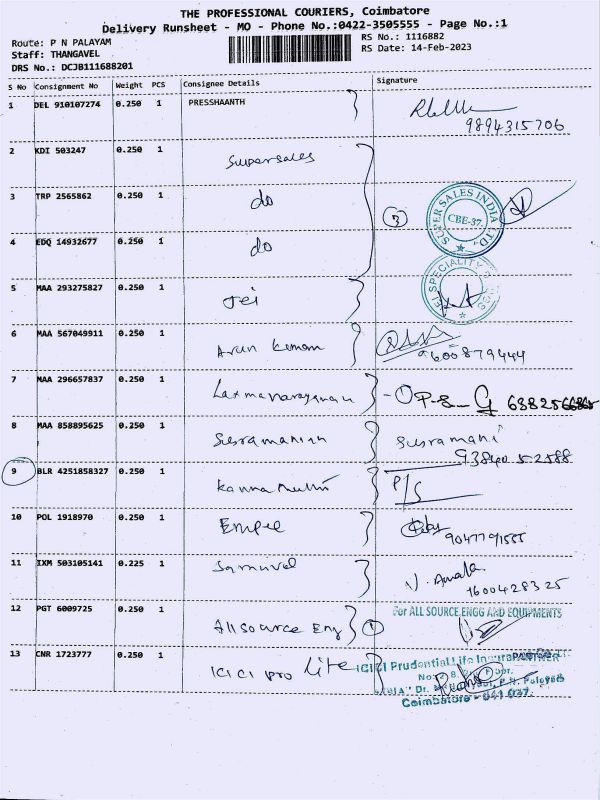 THE PROFESSIONAL COURIERS, Coimbatore
Delivery Runsheet - MO - Phone No.:0422-3505555 - Page No.:1
Route: P N PALAYAM
Staff: THANGAVEL
DRS No.: DCJB111688201
RS No.: 1116882
RS Date: 14-Feb-2023
S No Consignment No Weight PCS Consignee Details Signature
1 DEL 910107274 0.250 1 PRESSHAANTH
9894315706
2 KDI 503247 0.250 1 Supersales
3 TRP 2565862 0.250 1 do
4 EDQ 14932677 0.250 1 do
3
SUPER SALES INDIA LTD.
CBE-37.
5 MAA 293275827 0.250 1 Jei
SPECIALITY
6 MAA 567049911 0.250 1 Arun Kumar
9600879444
7 MAA 296657837 0.250 1 Laxmanarayanan
8 MAA 858895625 0.250 1 Susramanian Susramani
93840 52588
9 BLR 4251858327 0.250 1 P/S
10 POL 1918970 0.250 1 Empee
11 IXM 503105141 0.225 1 Samuvel
1600428325
12 PGT 6009725 0.250 1 All source Eng 1
For ALL SOURCE ENGG AND EQUIPMENTS
PARTNER
13 CNR 1723777 0.250 1 ICICI pro Life
ICICI Prudential Life Insurance
Coimbatore - 641 037.